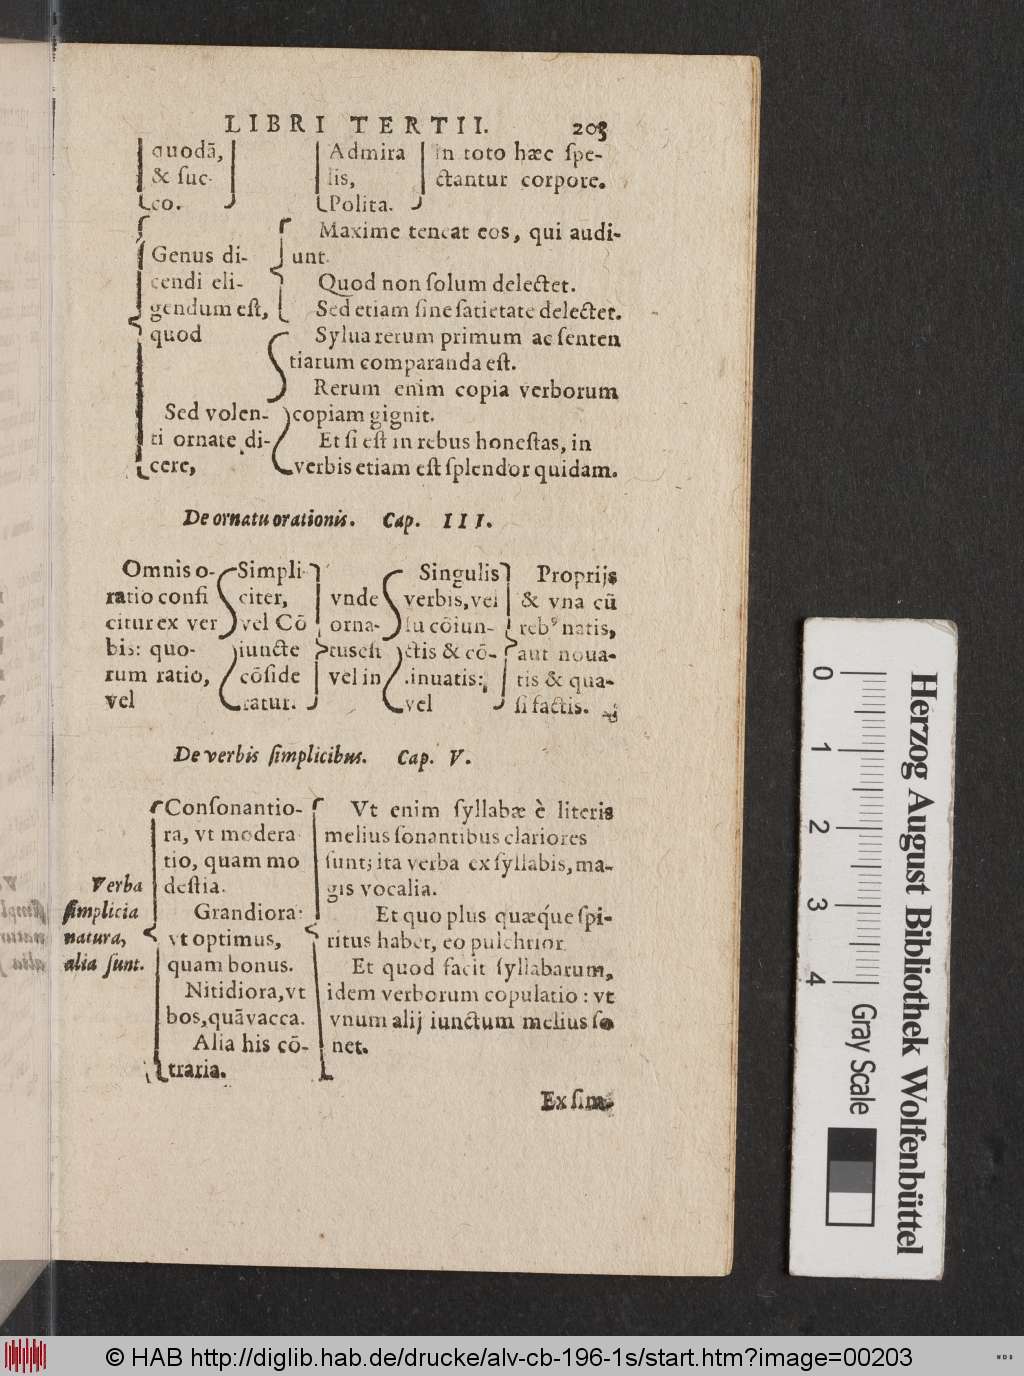 LIBRI TERTII. 203
quodā,
& suc-
co.
Admira
lis,
Polita.
in toto hæc spe-
ctantur corpore.
Genus di-
cendi eli-
gendum est,
quod
Maxime teneat eos, qui audi-
unt.
Quod non solum delectet.
Sed etiam sine satietate delectet.
Sed volen-
ti ornate di-
cere,
Sylua rerum primum ac senten
tiarum comparanda est.
Rerum enim copia verborum
copiam gignit.
Et si est in rebus honestas, in
verbis etiam est splendor quidam.
De ornatu orationis. Cap. III.
Omnis o-
ratio confi
citur ex ver
bis: quo-
rum ratio,
vel
Simpli-
citer,
vel Cō
iuncte
cōside
ratur.
vnde
orna-
tus est
vel in
Singulis
verbis, vel
in cōiun-
ctis & cō-
tinuatis:
vel
Proprijs
& vna cū
rebꝰ natis,
aut noua-
tis & qua-
si factis.
De verbis simplicibus. Cap. V.
Verba
simplicia
natura,
alia sunt.
Consonantio-
ra, vt modera
tio, quam mo
destia.
Grandiora:
vt optimus,
quam bonus.
Nitidiora, vt
bos, quā vacca.
Alia his cō-
traria.
Vt enim syllabæ è literis
melius sonantibus clariores
sunt; ita verba ex syllabis, ma-
gis vocalia.
Et quo plus quæq́ue spi-
ritus habet, eo pulchrior.
Et quod facit syllabarum,
idem verborum copulatio: vt
vnum alij iunctum melius so
net.
Ex sim-
0 1 2 3 4
Gray Scale
Herzog August Bibliothek Wolfenbüttel
© HAB http://diglib.hab.de/drucke/alv-cb-196-1s/start.htm?image=00203